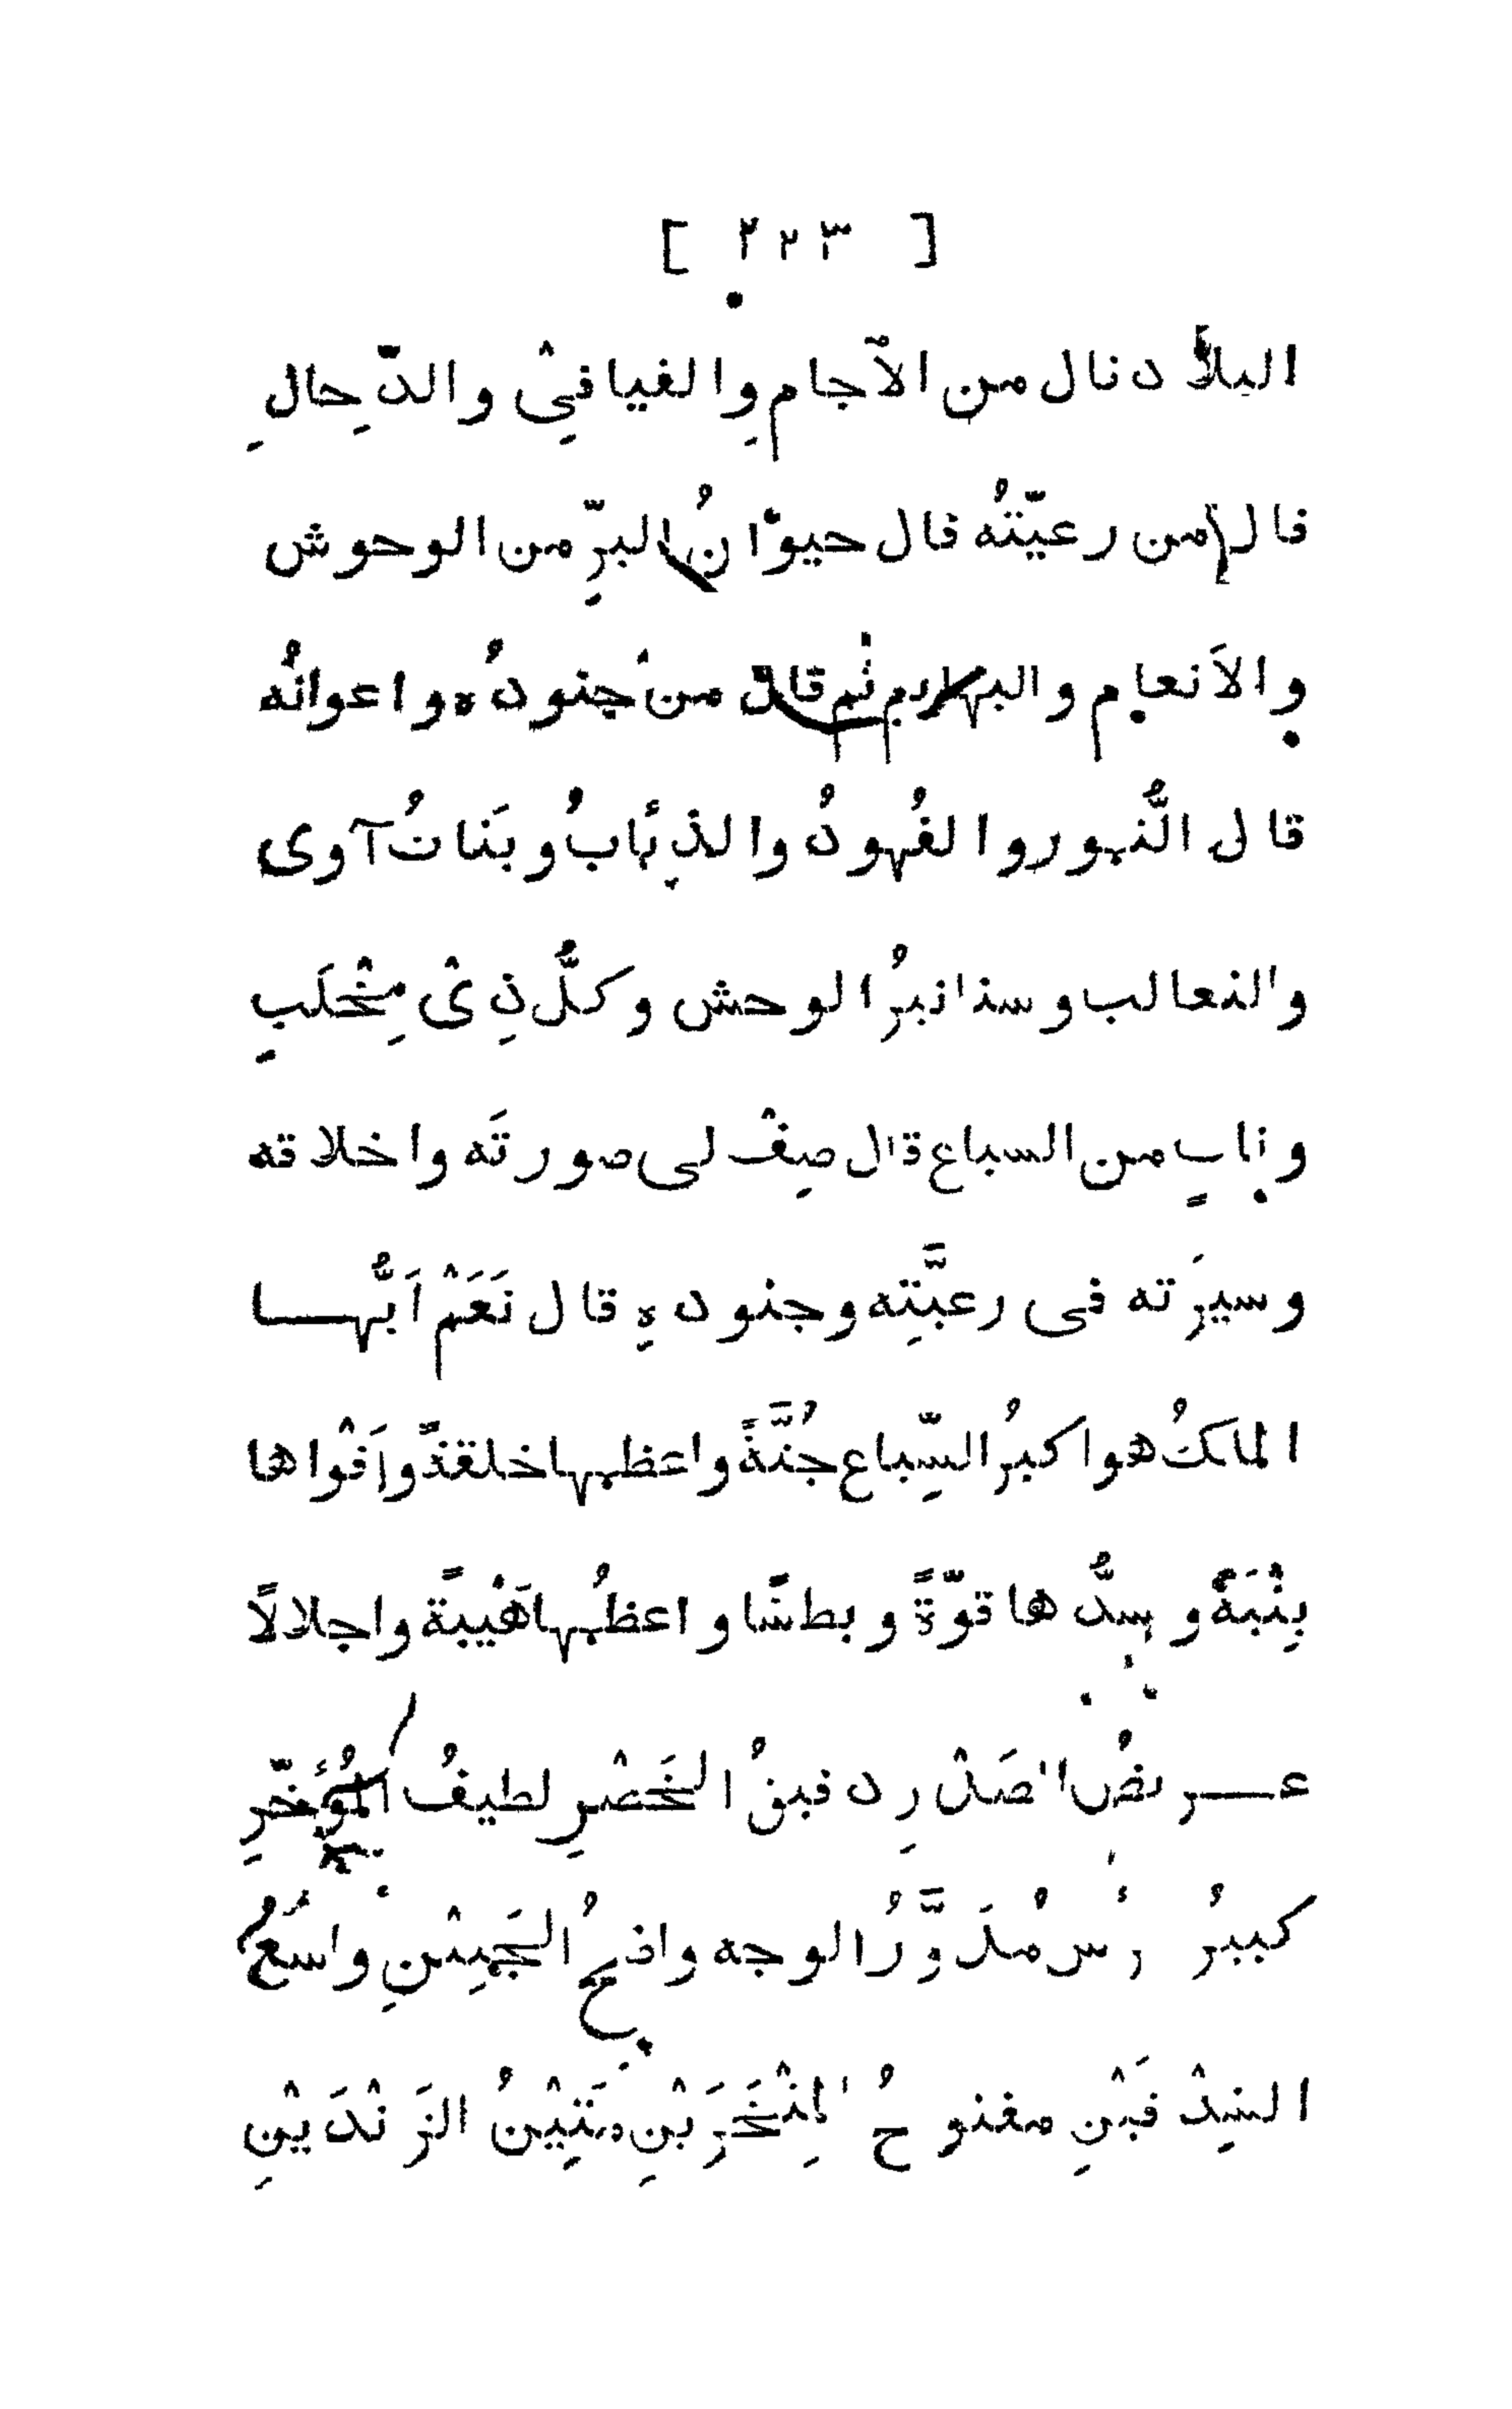 [ ٢٢٣ ]
البلاد قال من الآجام والفيافيْ والدّحالِ
قال من رعيّتُه قال حيوَانُ البرِّ من الوحوش
والاَنعام والبهايم ثم قال منْ جنودُه واعوانُه
قال النُّمور والفُهودُ والذِئابُ وبَناتُ آوى
والثعالب وسنانيرُ الوحش وكلُّ ذِىْ مِخْلَبٍ
ونابٍ من السباع قال صِفْ لى صورتَه واخلاقه
وسيرَته فى رعيَّتِه وجنودهِ قال نَعَمْ اَيُّهـــا
الملكُ هو اكبرُ السِّباع جُثَّةً واعظمها خلقةً واَقْواها
بِنْيَةً واشدُّها قوّةً وبطشًا واعظمُها هَيْبةً واجلالاً
عـــريضُ الصَدْرِ دقيقُ الخَصْرِ لطيفُ المُؤخّرِ
كبيرُ الرأس مُدَوَّرُ الوجه واضحُ الجَبِيْنِ واسعُ
الشِدْقَيْنِ مفتوحُ المِنْخَرَيْنِ مَتِيْنُ الزَنْدَيْنِ